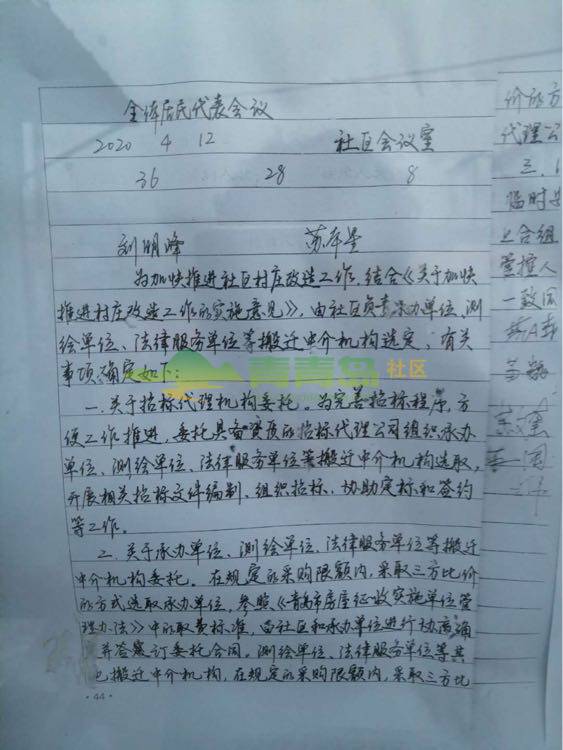 全体居民代表会议
2020 4 12 社区会议室
36 28 8
刘明峰
为加快推进社区村庄改造工作,结合《关于加快
推进村庄改造工作的实施意见》,由社区负责承办单位、测
绘单位、法律服务单位等搬迁中介机构选定,有关
事项确定如下:
一.关于招标代理机构委托。为完善招标程序,方
便工作推进,委托具备资质的招标代理公司组织承办
单位、测绘单位、法律服务单位等搬迁中介机构选取,
开展相关招标文件编制、组织招标、协助定标和签约
等工作。
二.关于承办单位、测绘单位、法律服务单位等搬迁
中介机构委托。在规定的采购限额内,采取三方比价
的方式选取承办单位,参照《青岛市房屋征收实施单位管
理办法》中的取费标准,由社区和承办单位进行协商确
并签订委托合同。测绘单位、法律服务单位等其
它搬迁中介机构,在规定的采购限额内,采取三方比
·44·
价的方
代理公
三.
临时
上合组
管控人
一致同
青青岛社区